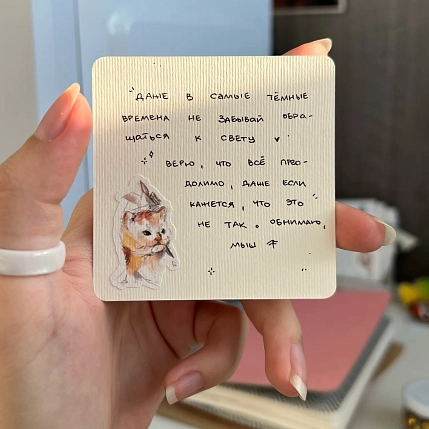 "ДАЖЕ В САМЫЕ ТЁМНЫЕ
ВРЕМЕНА НЕ ЗАБЫВАЙ ОБРА-
ЩАТЬСЯ К СВЕТУ ♥"
ВЕРЮ, ЧТО ВСЁ ПРЕО-
ДОЛИМО, ДАЖЕ ЕСЛИ
КАЖЕТСЯ, ЧТО ЭТО
НЕ ТАК. ОБНИМАЮ,
МЫШ